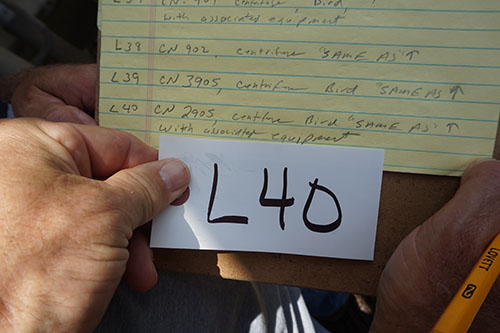 L37 CN. 901, centrifuge, Bird,
with associated equipment
L38 CN 902, centrifuge "SAME AS" ↑
L39 CN 3905, centrifuge Bird "SAME AS" ↑
L40 CN 2905, centrifuge Bird "SAME AS" ↑
with associated equipment
L40
LOVETT